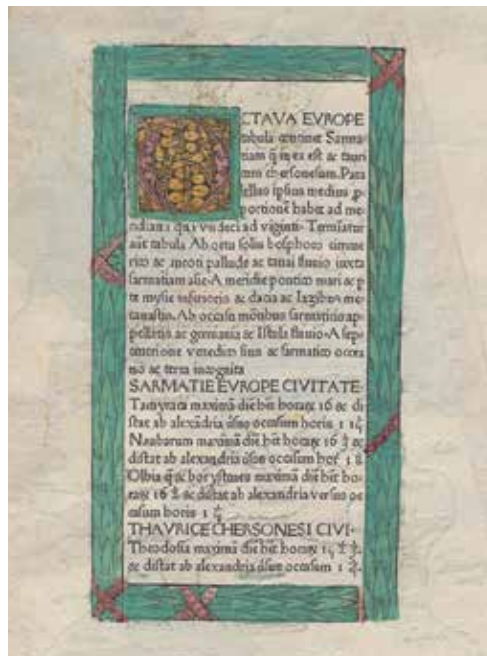 OCTAVA EVROPE
tabula continet Sarma-
tiam q̄ in ea est & tauri
cam chersonesum. Para
lellus ipsius medius p̱
portionē habet ad me-
ridianū quā undeci ad viginti. Terminatur
aūt tabula Ab ortu solis bosphoro cimme
rico & meoti pallude ac tanai fluvio iuxta
sarmatiam asie. A meridie pontico mari & p
te mysie inferioris & dacia ac Iazibus me-
tanastis. Ab occasu mōtibus sarmaticis ap-
pellatis ac germania & Istula fluvio. A sep-
temtrione venedico sinu & sarmatico ocea
no ac terra incognita
SARMATIE EVROPE CIVITATE.
Tamyraca maximā diē hēt horaꝝ 16 & di
stat ab alexādria ūsus occasum horis 1
Naubarum maximā diē hēt horaꝝ 16 &
distat ab alexandria ūsus occasum hor 1
Olbia q̄ & borystenes maximā diē hēt ho-
raꝝ 16 & distat ab alexandria versus oc
casum horis 1
THAVRICE CHERSONESI CIVI.
Theodosia maximā diē hēt horaꝝ
& distat ab alexandria ūsus occasum 1